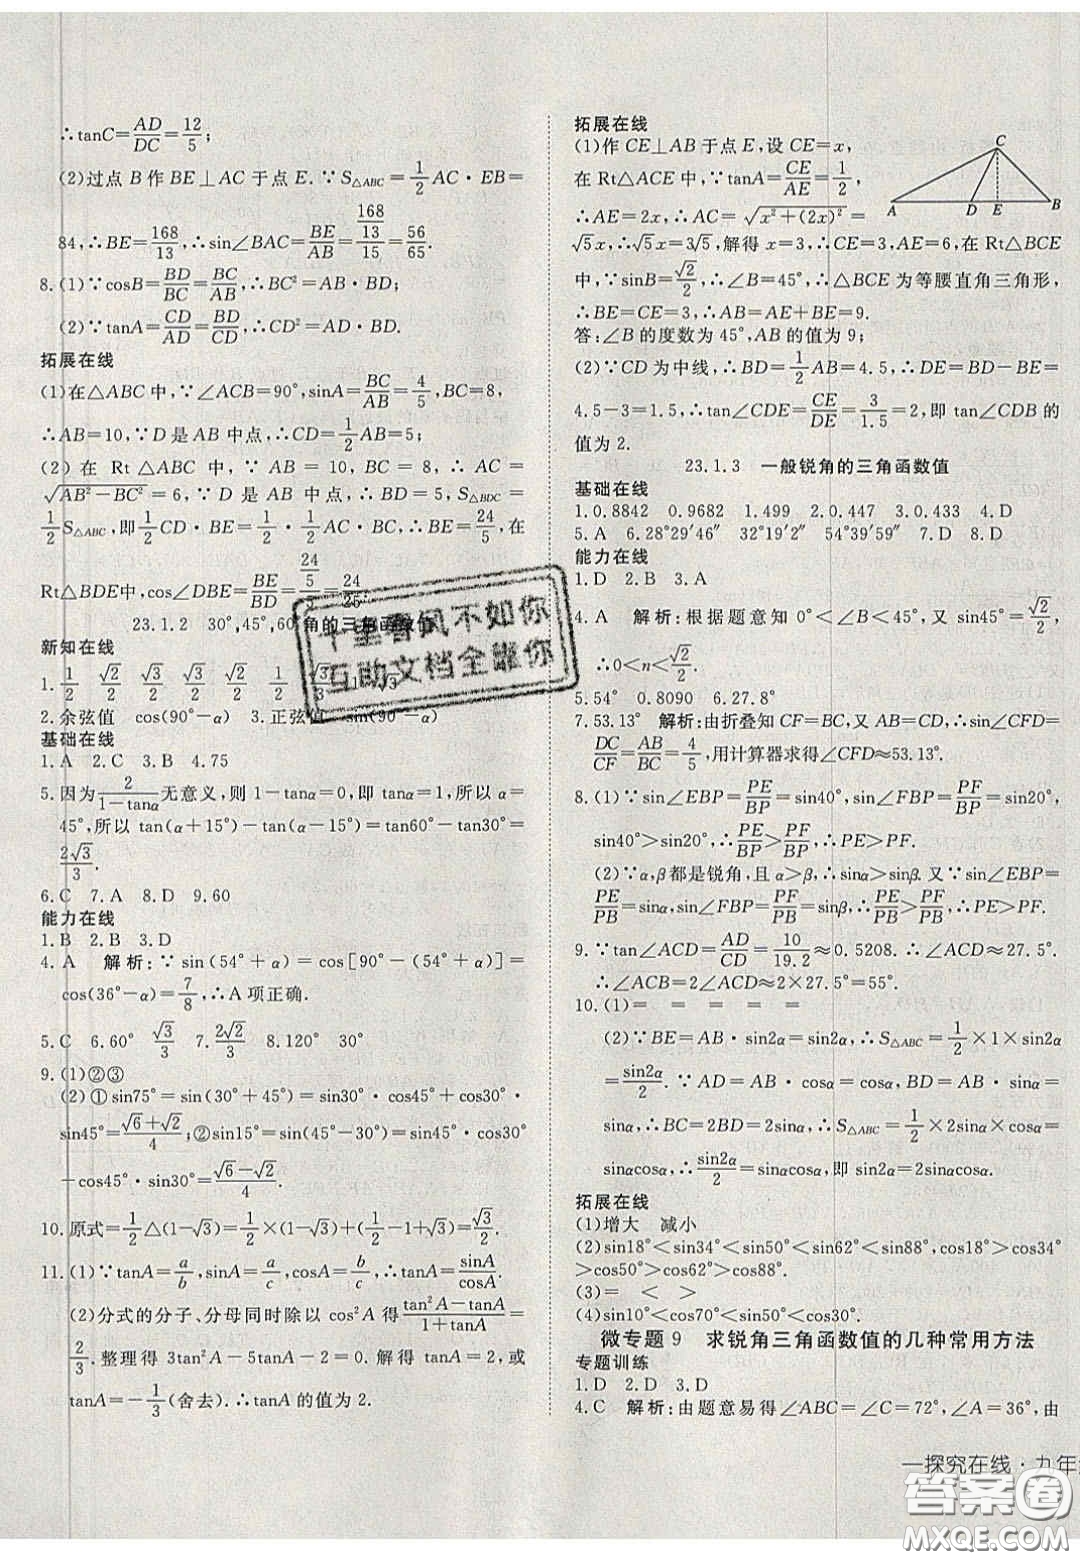 ∴tanC=AD/DC=12/5;
(2)过点 B 作 BE⊥AC 于点 E.∵S△ABC=1/2 AC·EB=
84,∴BE=168/13,∴sin∠BAC=BE/AB=(168/13)/15=56/65.
8.(1)∵cosB=BD/BC=BC/AB,∴BC²=AB·BD;
(2)∵tanA=CD/AD=BD/CD,∴CD²=AD·BD.
拓展在线
(1)在△ABC 中,∵∠ACB=90°,sinA=BC/AB=4/5,BC=8,
∴AB=10,∵D 是 AB 中点,∴CD=1/2 AB=5;
(2) 在 Rt △ABC 中,∵ AB = 10, BC = 8,∴ AC =
√(AB²-BC²)=6,∵D 是 AB 中点,∴BD=5,S△BDC=
1/2 S△ABC,即1/2 CD·BE=1/2·1/2 AC·BC,∴BE=24/5,在
Rt△BDE中,cos∠DBE=BE/BD=(24/5)/5=24/25.
23.1.2 30°,45°,60°角的三角函数值
新知在线
1.1/2 √2/2 √3/2 √3/2 √2/2 1/2 √3/3 1 √3
2.余弦值 cos(90°-α) 3.正弦值 sin(90°-α)
基础在线
1.A 2.C 3.B 4.75
5.因为2/(1-tanα)无意义,则 1-tanα=0,即 tanα=1,所以 α=
45°,所以 tan(α+15°)-tan(α-15°)=tan60°-tan30°=
2√3/3.
6.C 7.A 8.D 9.60
能力在线
1.B 2.B 3.D
4.A 解析:∵ sin(54°+α)=cos[90°-(54°+α)]=
cos(36°-α)=7/8,∴A 项正确.
5.C 6.60° √3/3 7.2√2/3 8.120° 30°
9.(1)②③
(2)①sin75°=sin(30°+45°)=sin30°·cos45°+cos30°·
sin45°=(√6+√2)/4;②sin15°=sin(45°-30°)=sin45°·cos30°
-cos45°·sin30°=(√6-√2)/4.
10.原式=1/2△(1-√3)=1/2×(1-√3)+(1/2-1+√3)=√3/2.
11.(1)∵tanA=a/b,sinA=a/c,cosA=b/c,∴tanA=sinA/cosA.
(2)分式的分子、分母同时除以 cos²A 得(tan²A-tanA)/(1+tanA)=
2/3.整理得 3tan²A-5tanA-2=0.解得 tanA=2,或
tanA=-1/3(舍去).∴tanA 的值为 2.
拓展在线
(1)作 CE⊥AB 于点 E,设 CE=x,
在 Rt△ACE 中,∵tanA=CE/AE=1/2,
∴AE=2x,∴AC=√(x²+(2x)²)=
√5x,∴√5x=3√5,解得 x=3,∴CE=3,AE=6,在 Rt△BCE
中,∵sinB=√2/2,∴∠B=45°,∴△BCE 为等腰直角三角形,
∴BE=CE=3,∴AB=AE+BE=9.
答:∠B 的度数为 45°,AB 的值为 9;
(2)∵CD 为中线,∴BD=1/2 AB=4.5,∴DE=BD-BE=
4.5-3=1.5,∴tan∠CDE=CE/DE=3/1.5=2,即 tan∠CDB 的
值为 2.
C
A D E B
23.1.3 一般锐角的三角函数值
基础在线
1.0.8842 0.9682 1.499 2.0.447 3.0.433 4.D
5.A 6.28°29′46″ 32°19′2″ 54°39′59″ 7.D 8.D
能力在线
1.D 2.B 3.A
4.A 解析:根据题意知 0°<∠B<45°,又∵sin45°=√2/2,
∴0<n<√2/2.
5.54° 0.8090 6.27.8°
7.53.13° 解析:由折叠知 CF=BC,又 AB=CD,∴sin∠CFD=
DC/CF=AB/BC=4/5,用计算器求得∠CFD≈53.13°.
8.(1)∵sin∠EBP=PE/BP=sin40°,sin∠FBP=PF/BP=sin20°,
sin40°>sin20°,∴PE/BP>PF/BP,∴PE>PF.
(2)∵α,β都是锐角,且 α>β,∴sinα>sinβ.又∵sin∠EBP=
PE/PB=sinα,sin∠FBP=PF/PB=sinβ,∴PE/PB>PF/PB,∴PE>PF.
9.∵tan∠ACD=AD/CD=10/19.2≈0.5208.∴∠ACD≈27.5°.
∴∠ACB=2∠ACD≈2×27.5°=55°.
10.(1)= = = = =
(2)∵BE=AB·sin2α=sin2α,∴S△ABC=1/2×1×sin2α
=sin2α/2.∵AD=AB·cosα=cosα,BD=AB·sinα=
sinα,∴BC=2BD=2sinα,∴S△ABC=1/2×2sinα×cosα=
sinαcosα,∴sin2α/2=sinαcosα,即 sin2α=2sinαcosα.
拓展在线
(1)增大 减小
(2)sin18°<sin34°<sin50°<sin62°<sin88°,cos18°>cos34°
>cos50°>cos62°>cos88°.
(3)= < >
(4)sin10°<cos70°<sin50°<cos30°.
微专题 9 求锐角三角函数值的几种常用方法
专题训练
1.D 2.D 3.D
4.C 解析:由题意易得∠ABC=∠C=72°,∠A=36°,由
—探究在线·九年
千里春风不如你
互助文档全靠你
答案圈
MXQE.COM